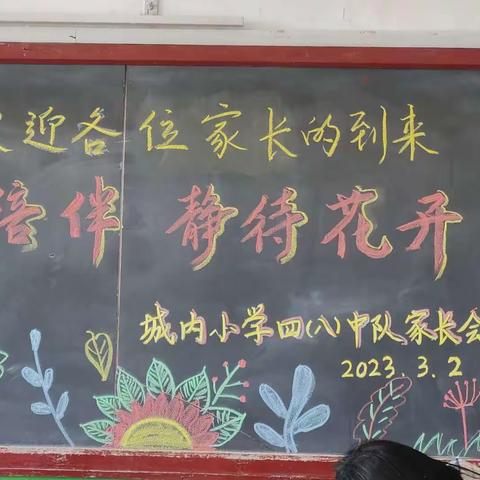 迎各位家长的到来
伴 静待花开
城内小学四(八)中队家长会
2023.3.2